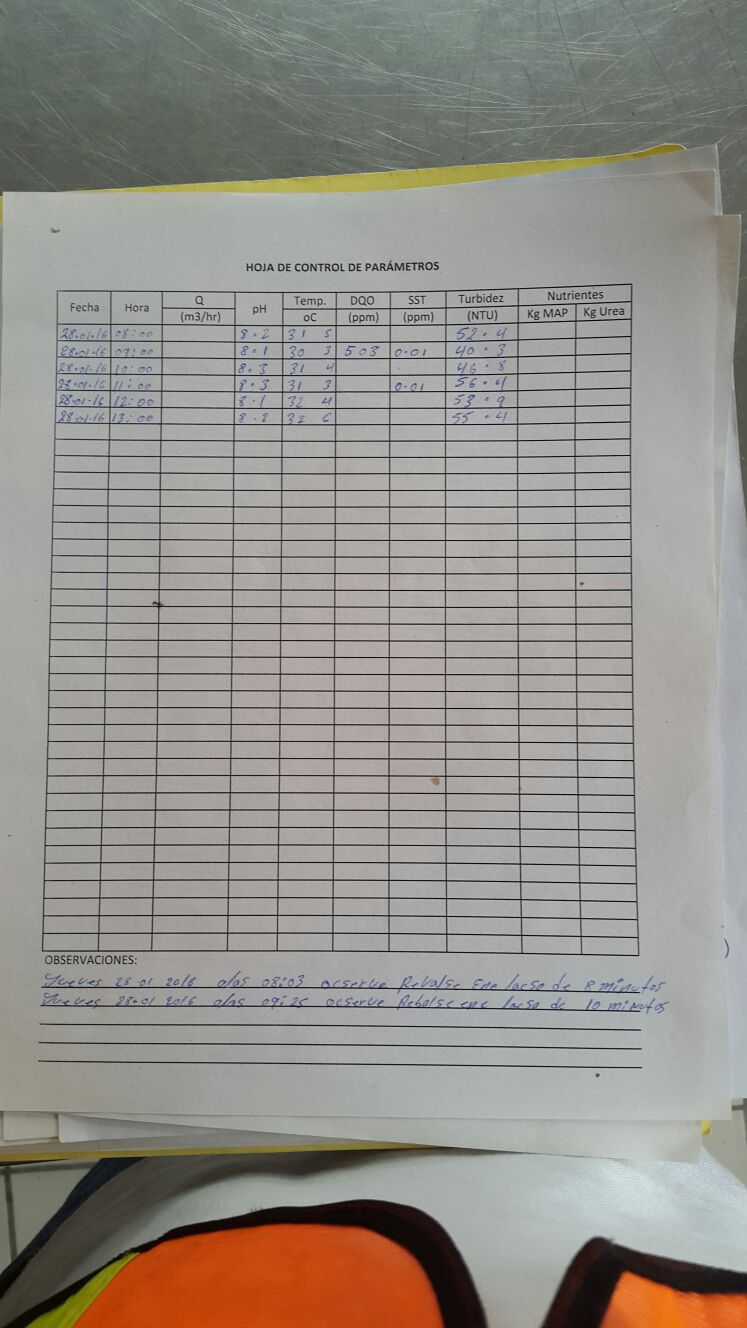 HOJA DE CONTROL DE PARÁMETROS
Fecha Hora Q (m3/hr) pH Temp. oC DQO (ppm) SST (ppm) Turbidez (NTU) Nutrientes Kg MAP Kg Urea
28.01.16 08:00 8.2 31 5 52.4
28.01.16 09:00 8.1 30 3 503 0.01 40.3
28.01.16 10:00 8.3 31 4 46.8
28.01.16 11:00 8.3 31 3 0.01 56.4
28.01.16 12:00 8.1 32 4 53.9
28.01.16 13:00 8.2 32 6 55.4
OBSERVACIONES:
Jueves 28.01 2016 alas 08:03 ocserve Rebalse ene lacso de 8 minutos
Jueves 28.01 2016 alas 09:25 ocserve Rebalse ene lacso de 10 minutos